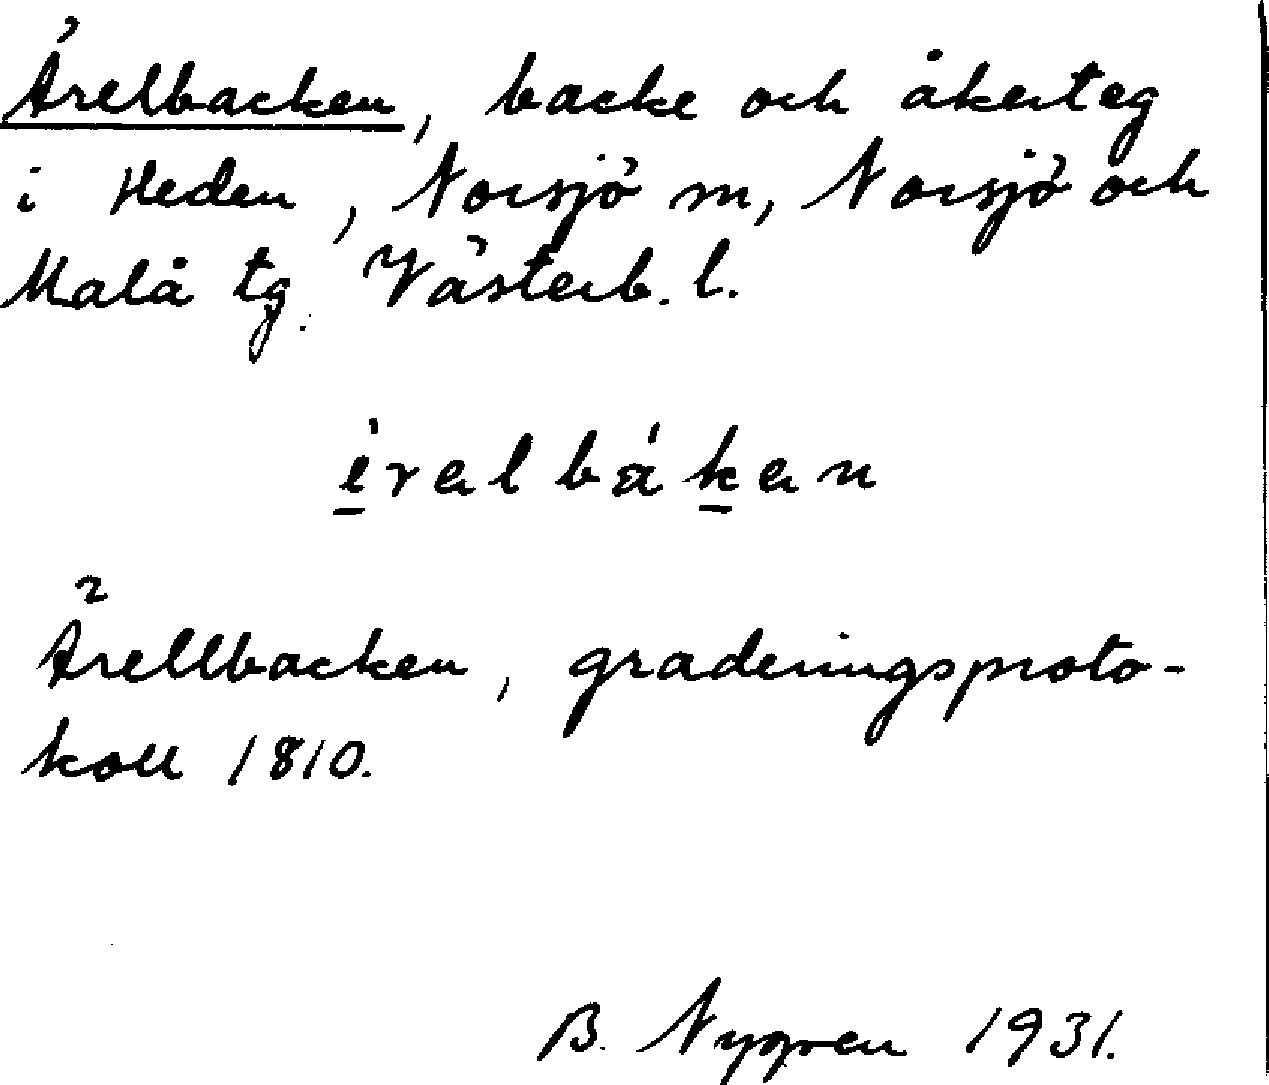 Ärelbacken, backe och åkerteg
i Heden, Norsjö sn, Norsjö och
Malå tg. Västerb. l.
èrelbáken
Ärellbacken, graderingsproto-
koll 1810.
B. Nygren 1931.